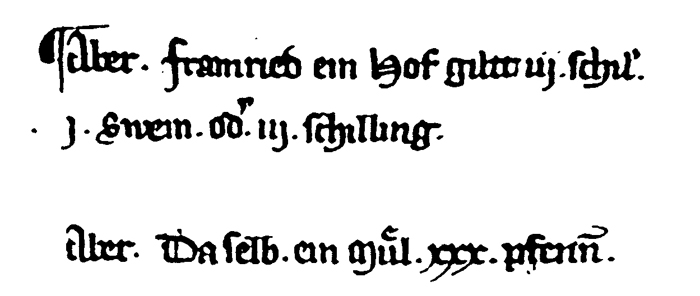 ¶ Aber. framried ein Hof giltt iij. schilˀ.
. j. Swein. odˀ. iij. schilling.
Aber. Daselb. ein Mủl. xxx. pfenn̄.